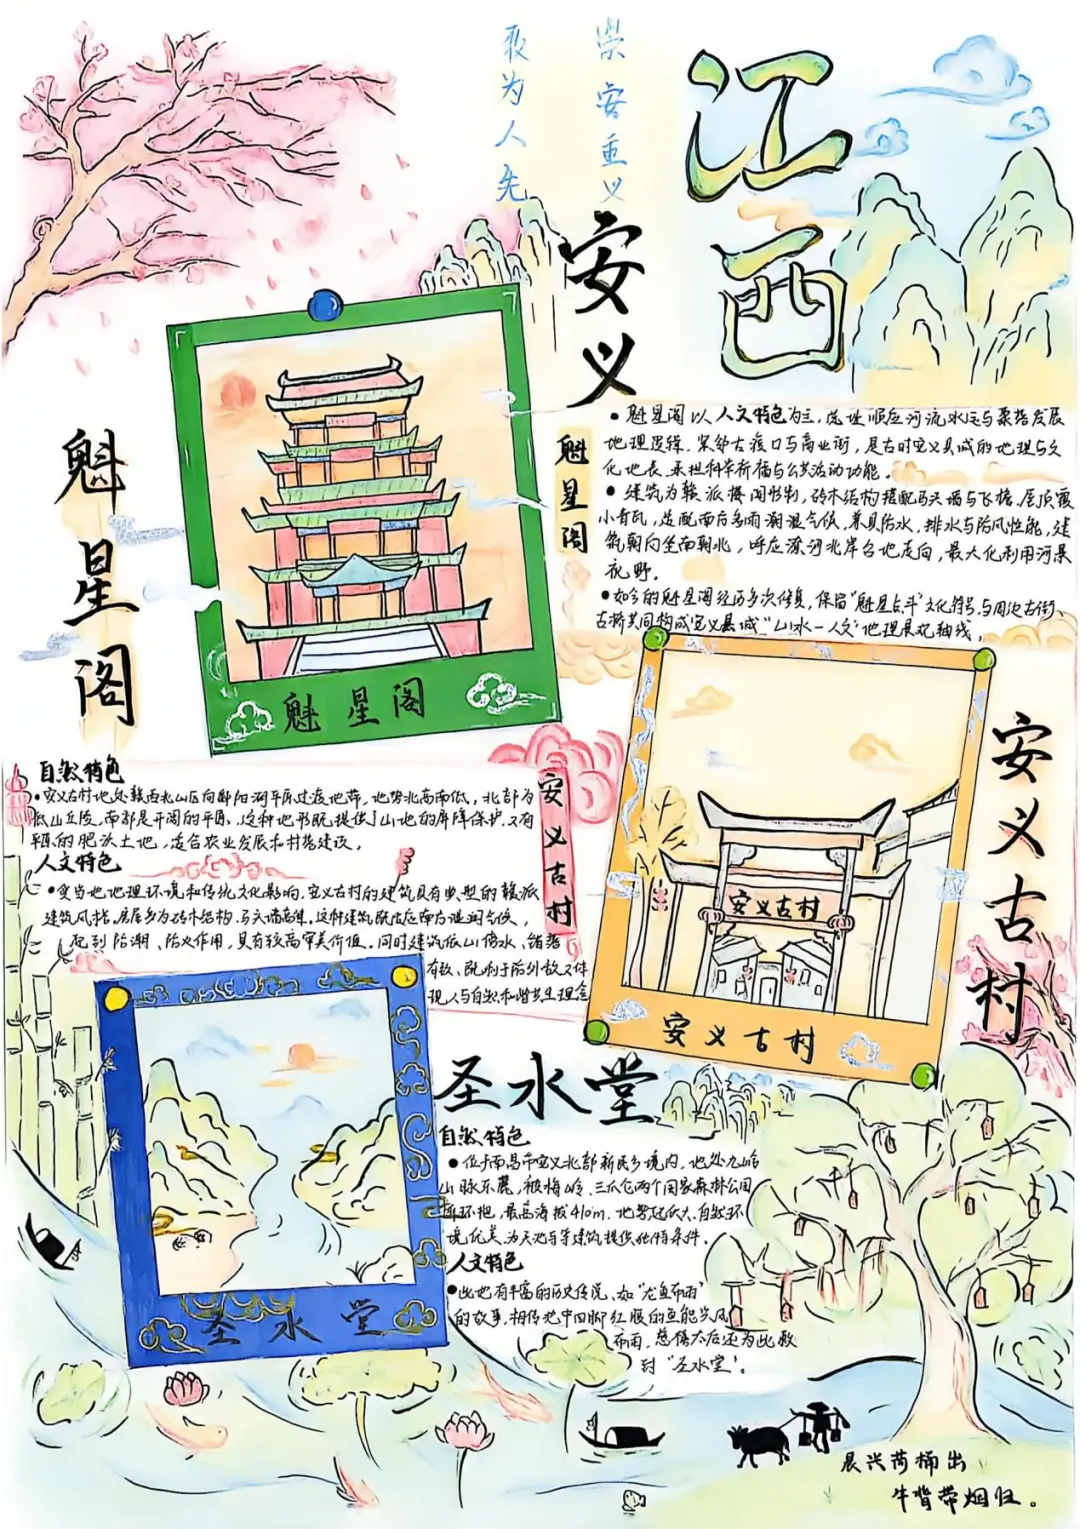 江西
崇安重义
敢为人先
安义
魁星阁
魁星阁
魁星阁
•魁星阁以人文特色为主,选址顺应河流水运与聚落发展
地理逻辑,紧邻古渡口与商业街,是古时安义县城的地理与文
化地表,承担科举祈福与公共活动功能。
•建筑为赣派楼阁形制,砖木结构搭配马头墙与飞檐,屋顶覆
小青瓦,适配南方多雨潮湿气候,兼具防水,排水与防风性能,建
筑朝向坐南朝北,呼应潦河北岸台地走向,最大化利用河景
视野。
•如今的魁星阁经历多次修复,保留“魁星点斗”文化符号,与周边古街、
古桥共同构成安义县城“山水—人文”地理景观轴线。
安义古村
安义古村
安义古村
安义古村
自然特色
•安义古村地处赣西北山区向鄱阳湖平原过渡地带,地势北高南低,北部为
低山丘陵,南部是开阔的平原,这种地形既提供了山地的屏障保护,又有
平原的肥沃土地,适合农业发展和村落建设。
人文特色
•受当地地理环境和传统文化影响,安义古村的建筑具有典型的赣派
建筑风格,房屋多为砖木结构,马头墙高耸,这种建筑既适应南方湿润气候,
起到防潮、防火作用,具有较高审美价值。同时建筑依山傍水、错落
有致、既利于防外敌又体
现人与自然和谐共生理念
圣水堂
圣水堂
自然特色
•位于南昌市安义北部新民乡境内,地处九岭
山脉东麓,被梅岭、三爪仑两个国家森林公园
环抱,最高海拔410m,地势起伏大,自然环
境优美,为天池寺等建筑提供独特条件。
人文特色
•此地有丰富的历史传说、如“龙鱼布雨”
的故事,相传池中四脚红腹的鱼能兴风
布雨,慈禧太后还为此敕
封“圣水堂”。
晨兴荷桶出
牛背带烟归。